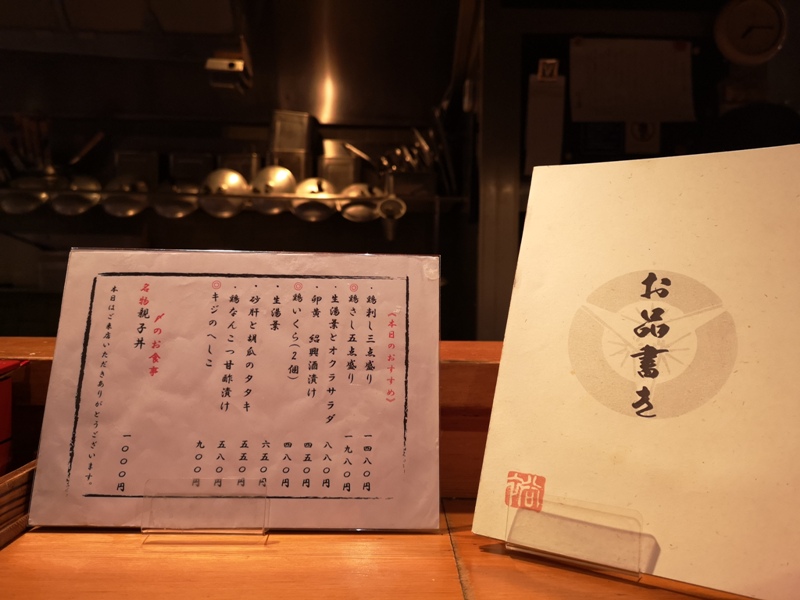 (本日のおすすめ)
・鶏刺し三点盛り 一四八〇円
◎鶏さし五点盛り 一九八〇円
・生湯葉とオクラサラダ 八八〇円
・卵黄 紹興酒漬け 四五〇円
◎鶏いくら(2個) 四八〇円
・生湯葉 六五〇円
・砂肝と胡瓜のタタキ 五五〇円
・鶏なんこつ甘酢漬け 五八〇円
◎キジのへしこ 九〇〇円
〆のお食事
名物親子丼 一〇〇〇円
本日はご来店いただきありがとうございます。
お品書き